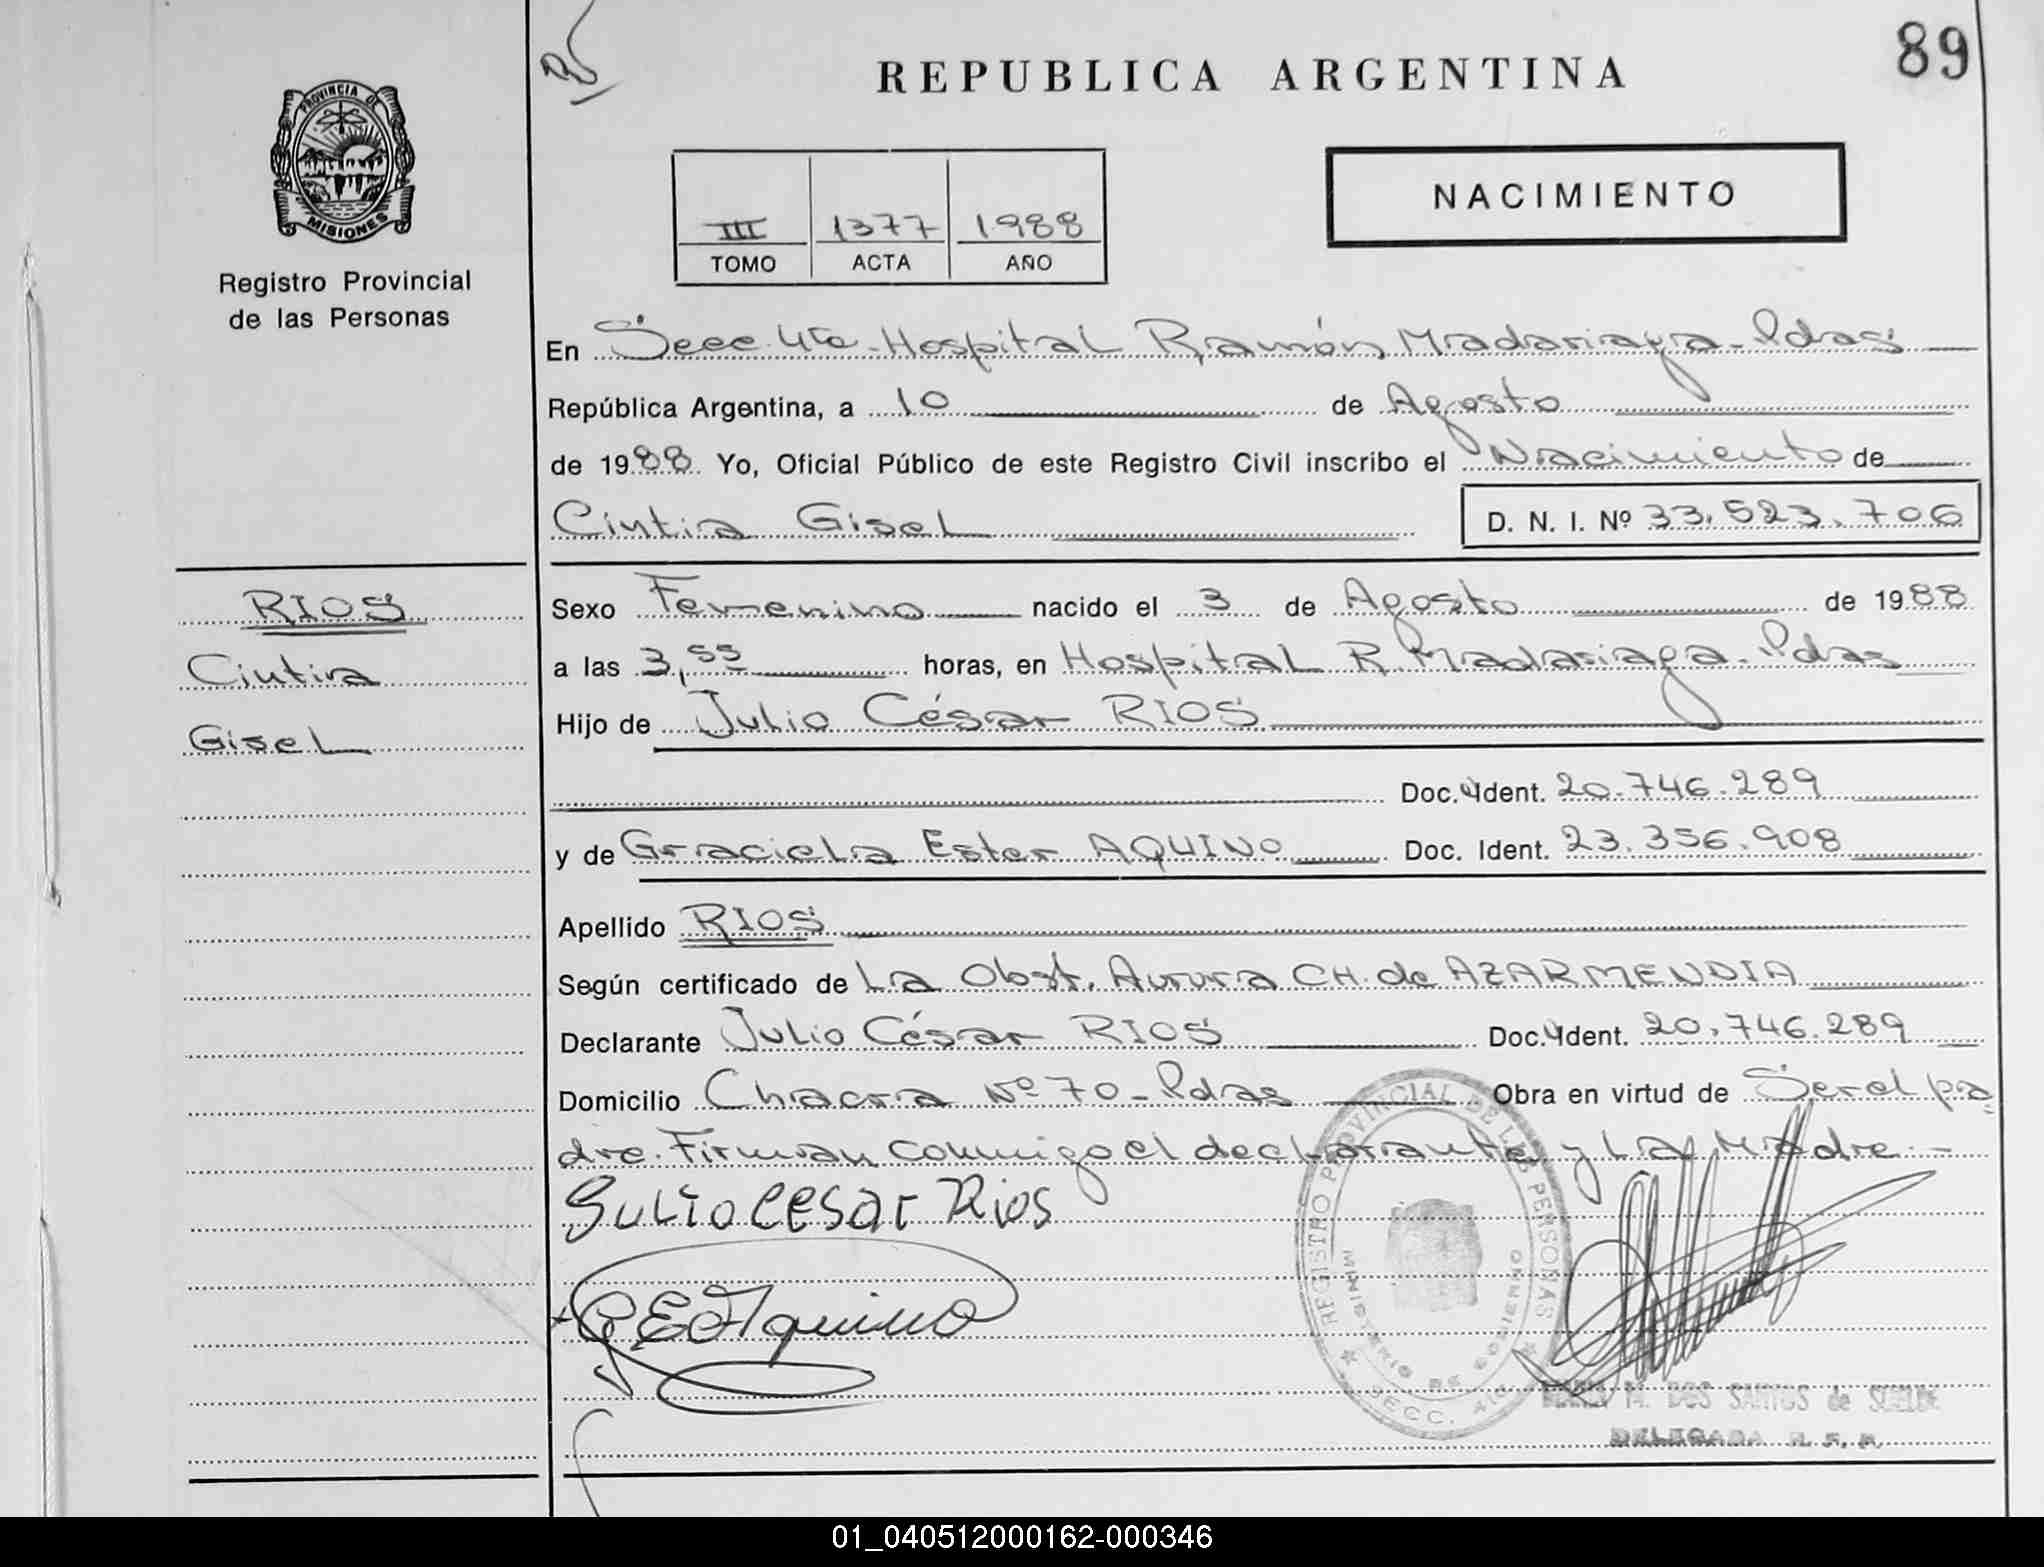 89
REPUBLICA ARGENTINA
PROVINCIA DE
MISIONES
Registro Provincial
de las Personas
NACIMIENTO
III 1377 1988
TOMO ACTA AÑO
En Secc. 4ta. Hospital Ramón Madariaga - Pdas
República Argentina, a 10 de Agosto
de 1988 Yo, Oficial Público de este Registro Civil inscribo el Nacimiento de
Cintia Gisel D. N. I. Nº 33.523.706
RIOS
Cintia
Gisel
Sexo Femenino nacido el 3 de Agosto de 1988
a las 3,55 horas, en Hospital R Madariaga - Pdas
Hijo de Julio César RIOS
Doc. Ident. 20.746.289
y de Graciela Ester AQUINO Doc. Ident. 23.356.908
Apellido RIOS
Según certificado de La Obst. Aurora CH. de AZARMENDIA
Declarante Julio César RIOS Doc. Ident. 20.746.289
Domicilio Chacra Nº 70 - Pdas Obra en virtud de Ser el pa
dre. Firman conmigo el declarante y La Madre.-
Julio Cesar Rios
G E Aquino
REGISTRO PROVINCIAL DE LAS PERSONAS
MINISTERIO DE GOBIERNO
SECC. 4ta
M. DOS SANTOS de
DELEGADA R. P. P.
01_040512000162-000346